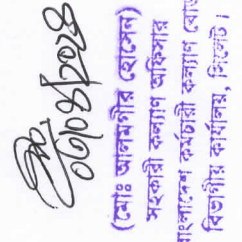 ০৩/০৪/২০২৪
(মোঃ আলমগীর হোসেন)
সহকারী কল্যাণ অফিসার
বাংলাদেশ কর্মচারী কল্যাণ বোর্ড
বিভাগীয় কার্যালয়, সিলেট।